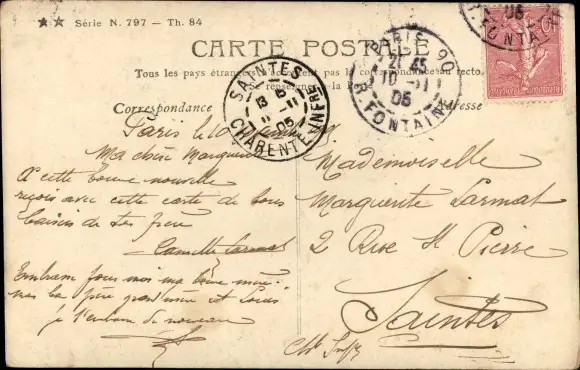 ★★ Série N. 797 — Th. 84
CARTE POSTALE
Tous les pays étrangers n'acceptent pas la correspondance au recto.
Se renseigner à la
Correspondance
Adresse
SAINTES
13 11
05
CHARENTE INFRE
PARIS 90
21 45
10 11
05
R. FONTAINE
05
FONTAINE
Paris le
Ma chère Marguerite
à cette bonne nouvelle
reçois avec cette carte de bons
baisers de ton frère
Camille Larmat
Embrasse pour moi ma bonne mère
mon père grand mère et
je t'embrasse de nouveau
Mademoiselle
Marguerite Larmat
2 Rue St Pierre
Saintes
Chte Infre